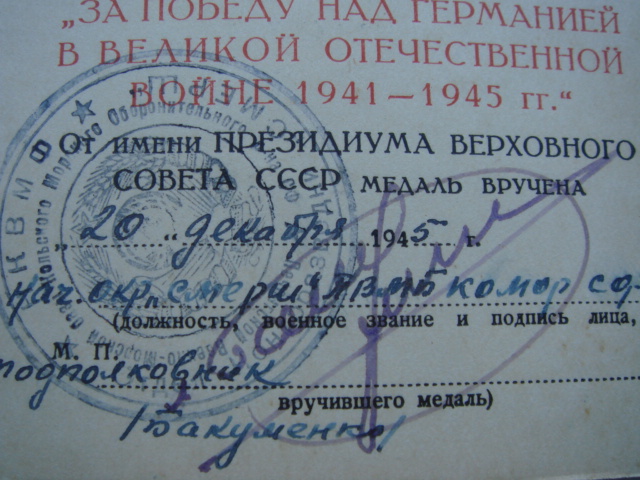 „ЗА ПОБЕДУ НАД ГЕРМАНИЕЙ
В ВЕЛИКОЙ ОТЕЧЕСТВЕННОЙ
ВОЙНЕ 1941—1945 гг.“
От имени ПРЕЗИДИУМА ВЕРХОВНОГО
СОВЕТА СССР МЕДАЛЬ ВРУЧЕНА
„20“ декабря 1945 г.
нач. окр „Смерш"
(должность, военное звание и подпись лица,
М. П.
подполковник
вручившего медаль)
/Бакуменко/
НКВМФ
Морского Оборонительного